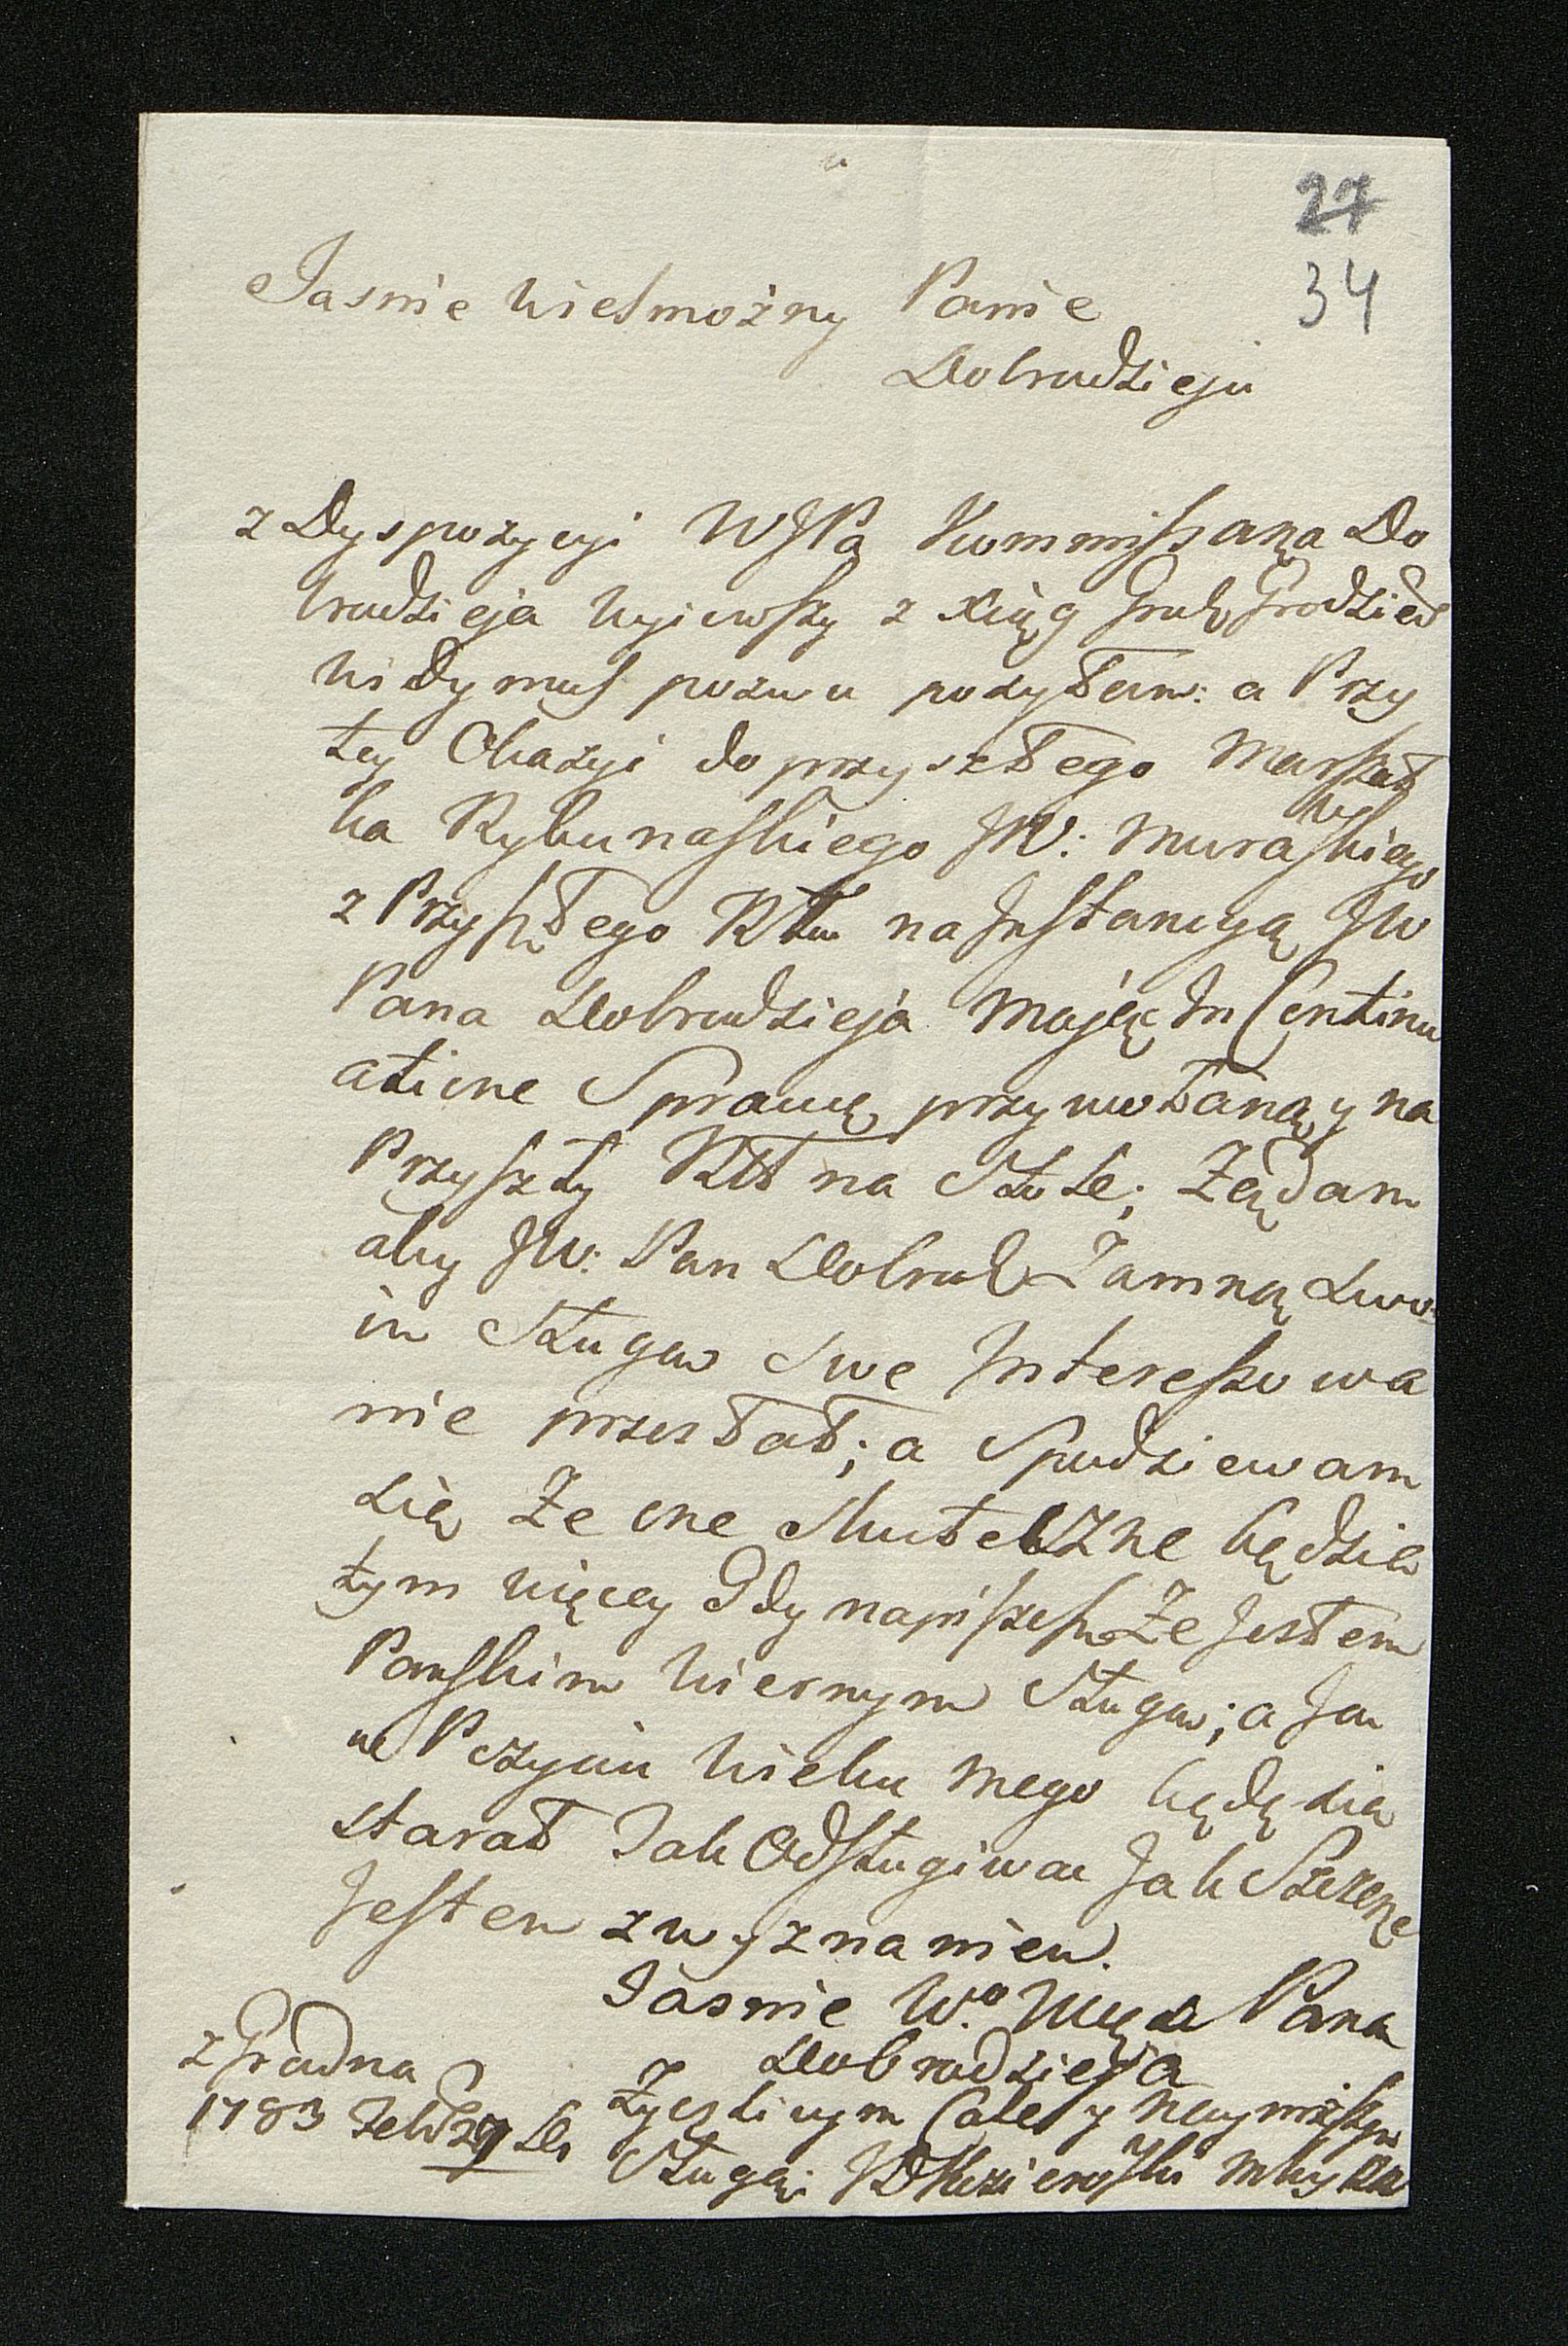 27
34
Jasnie Wielmożny Panie
Dobrodzieju
z Dyspozycyi WJPa Kommissarza Do
brodzieja wyiowszy z Xiąg Grodz Grodzień
widymus pozwu posyłam: a Przy
tey Okazyi do przyszłego Marszał
ka Trybunalskiego JW: Murawskiego
z Przyszłego Rku na Instancyą JW
Pana Dobrodzieja mając In Continu
atione Sprawę przywołaną y na
Przyszły Rok na Stole; Żądam
aby JW: Pan Dobrodz Zamną Swo
im Sługą Swe Interessowa
nie przesłał; a Spodziewam
się Że one Skuteczne będzie
tym więcey Gdy napiszesz Że Jestem
Panskim Wiernym Sługą; a Ja
w Pożyciu Wieku mego będę się
starał Jak Odsługiwać Jak Szczerze
Jestem z wyznaniem.
Jasnie Wo Mego Pana
Dobrodzieja
z Grodna
1783 Febr 27 Da
Życzliwym Cale y naynizszym
Sługą: